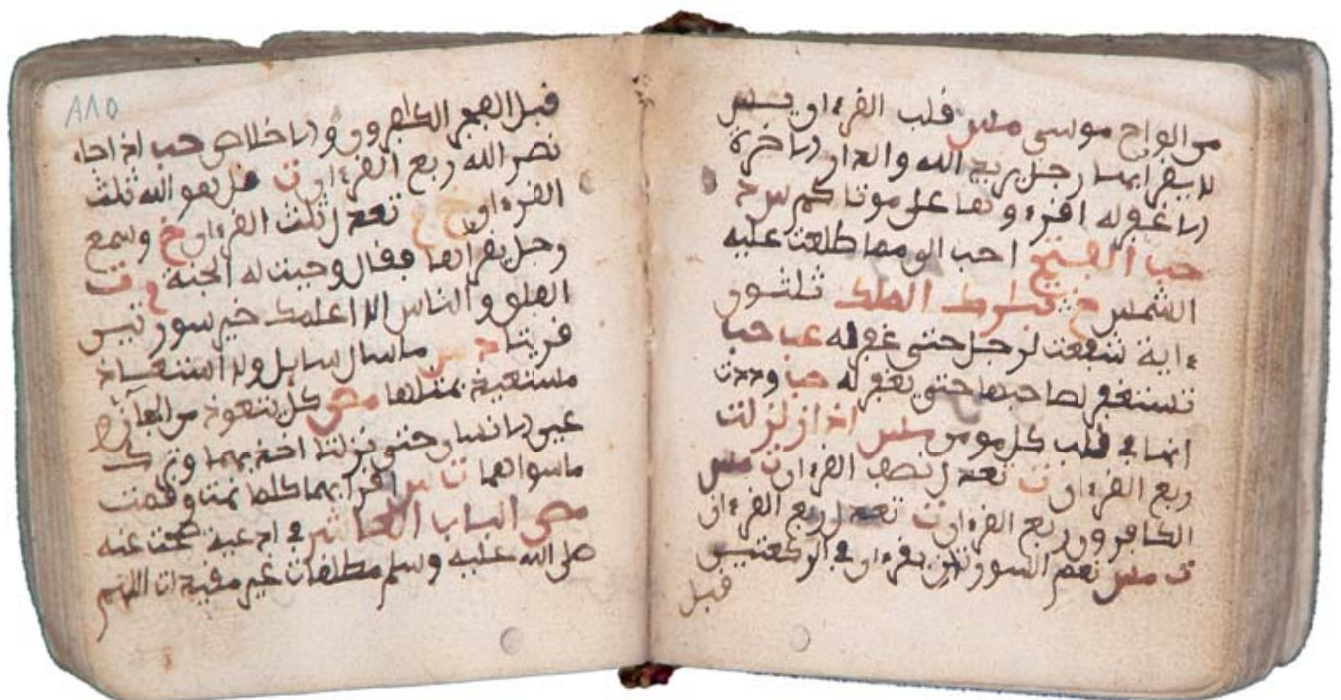 من الواح موسى مس قلب القرءان يس
لا يقرأها رجل يريد الله والدار الاخرة
الا غفر له اقرءوها على موتاكم س د
حب الفتح احب الي مما طلعت عليه
الشمس خ ت الملك ثلثون
ءاية شفعت لرجل حتى غفر له عب حب
تستغفر لصاحبها حتى يغفر له حب وددت
انها في قلب كل مومن مس اذا زلزلت
ربع القرءان ت تعدل نصف القرءان ت مس
الكافرون ربع القرءان ت تعدل ربع القرءان
ت مس نعم السورتان يقرءان في الركعتين
قبل
٨٨٥
قبل الفجر الكافرون والاخلاص حب اذا جاء
نصر الله ربع القرءان ت قل هو الله ثلث
القرءان خ تعدل ثلث القرءان خ وسمع
رجل يقرأها فقال وجبت له الجنة ت
الفلق والناس الا اعلمك خير سورتين
قريتا د س ما سال سايل ولا استعاذ
مستعيذ بمثلها مص كان يتعوذ من الجان
عين الانسان حتى نزلتا اخذ بهما وترك
ما سواهما ت اقرأ بهما كلما نمت وقمت
مص الباب العاشر في ادعية صحت عنه
صلى الله عليه وسلم مطلقات غير مقيدات اللهم